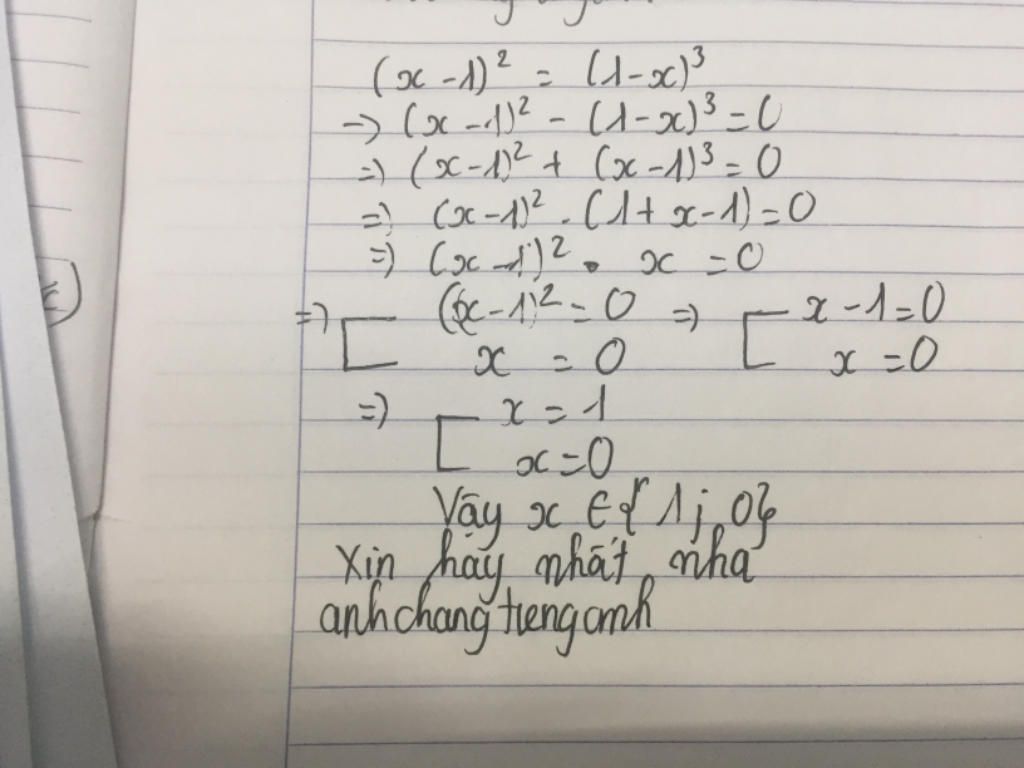 (x-1)² = (1-x)³
→ (x-1)² - (1-x)³ = 0
=> (x-1)² + (x-1)³ = 0
=> (x-1)² . (1+x-1) = 0
=> (x-1)² . x = 0
=> [ (x-1)² = 0 => [ x-1=0
x = 0 x = 0
=> [ x = 1
x = 0
Vậy x ∈ { 1; 0}
Xin hay nhất nha
anhchangtienganh